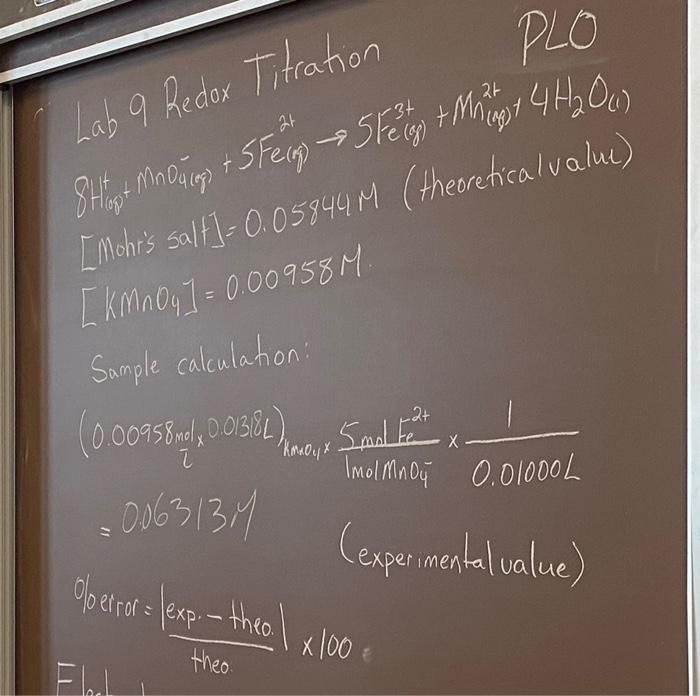 PLO
Lab 9 Redox Titration
8H⁺(aq) + MnO₄⁻(aq) + 5Fe²⁺(aq) → 5Fe³⁺(aq) + Mn²⁺(aq) + 4H₂O(l)
[Mohr's salt] = 0.05844 M (theoretical value)
[KMnO₄] = 0.00958 M.
Sample calculation:
(0.00958 mol/L × 0.01318 L)KMnO₄ × 5 mol Fe²⁺ / 1 mol MnO₄⁻ × 1 / 0.01000 L
= 0.06313 M
(experimental value)
% error = |exp. - theo.| / theo. × 100